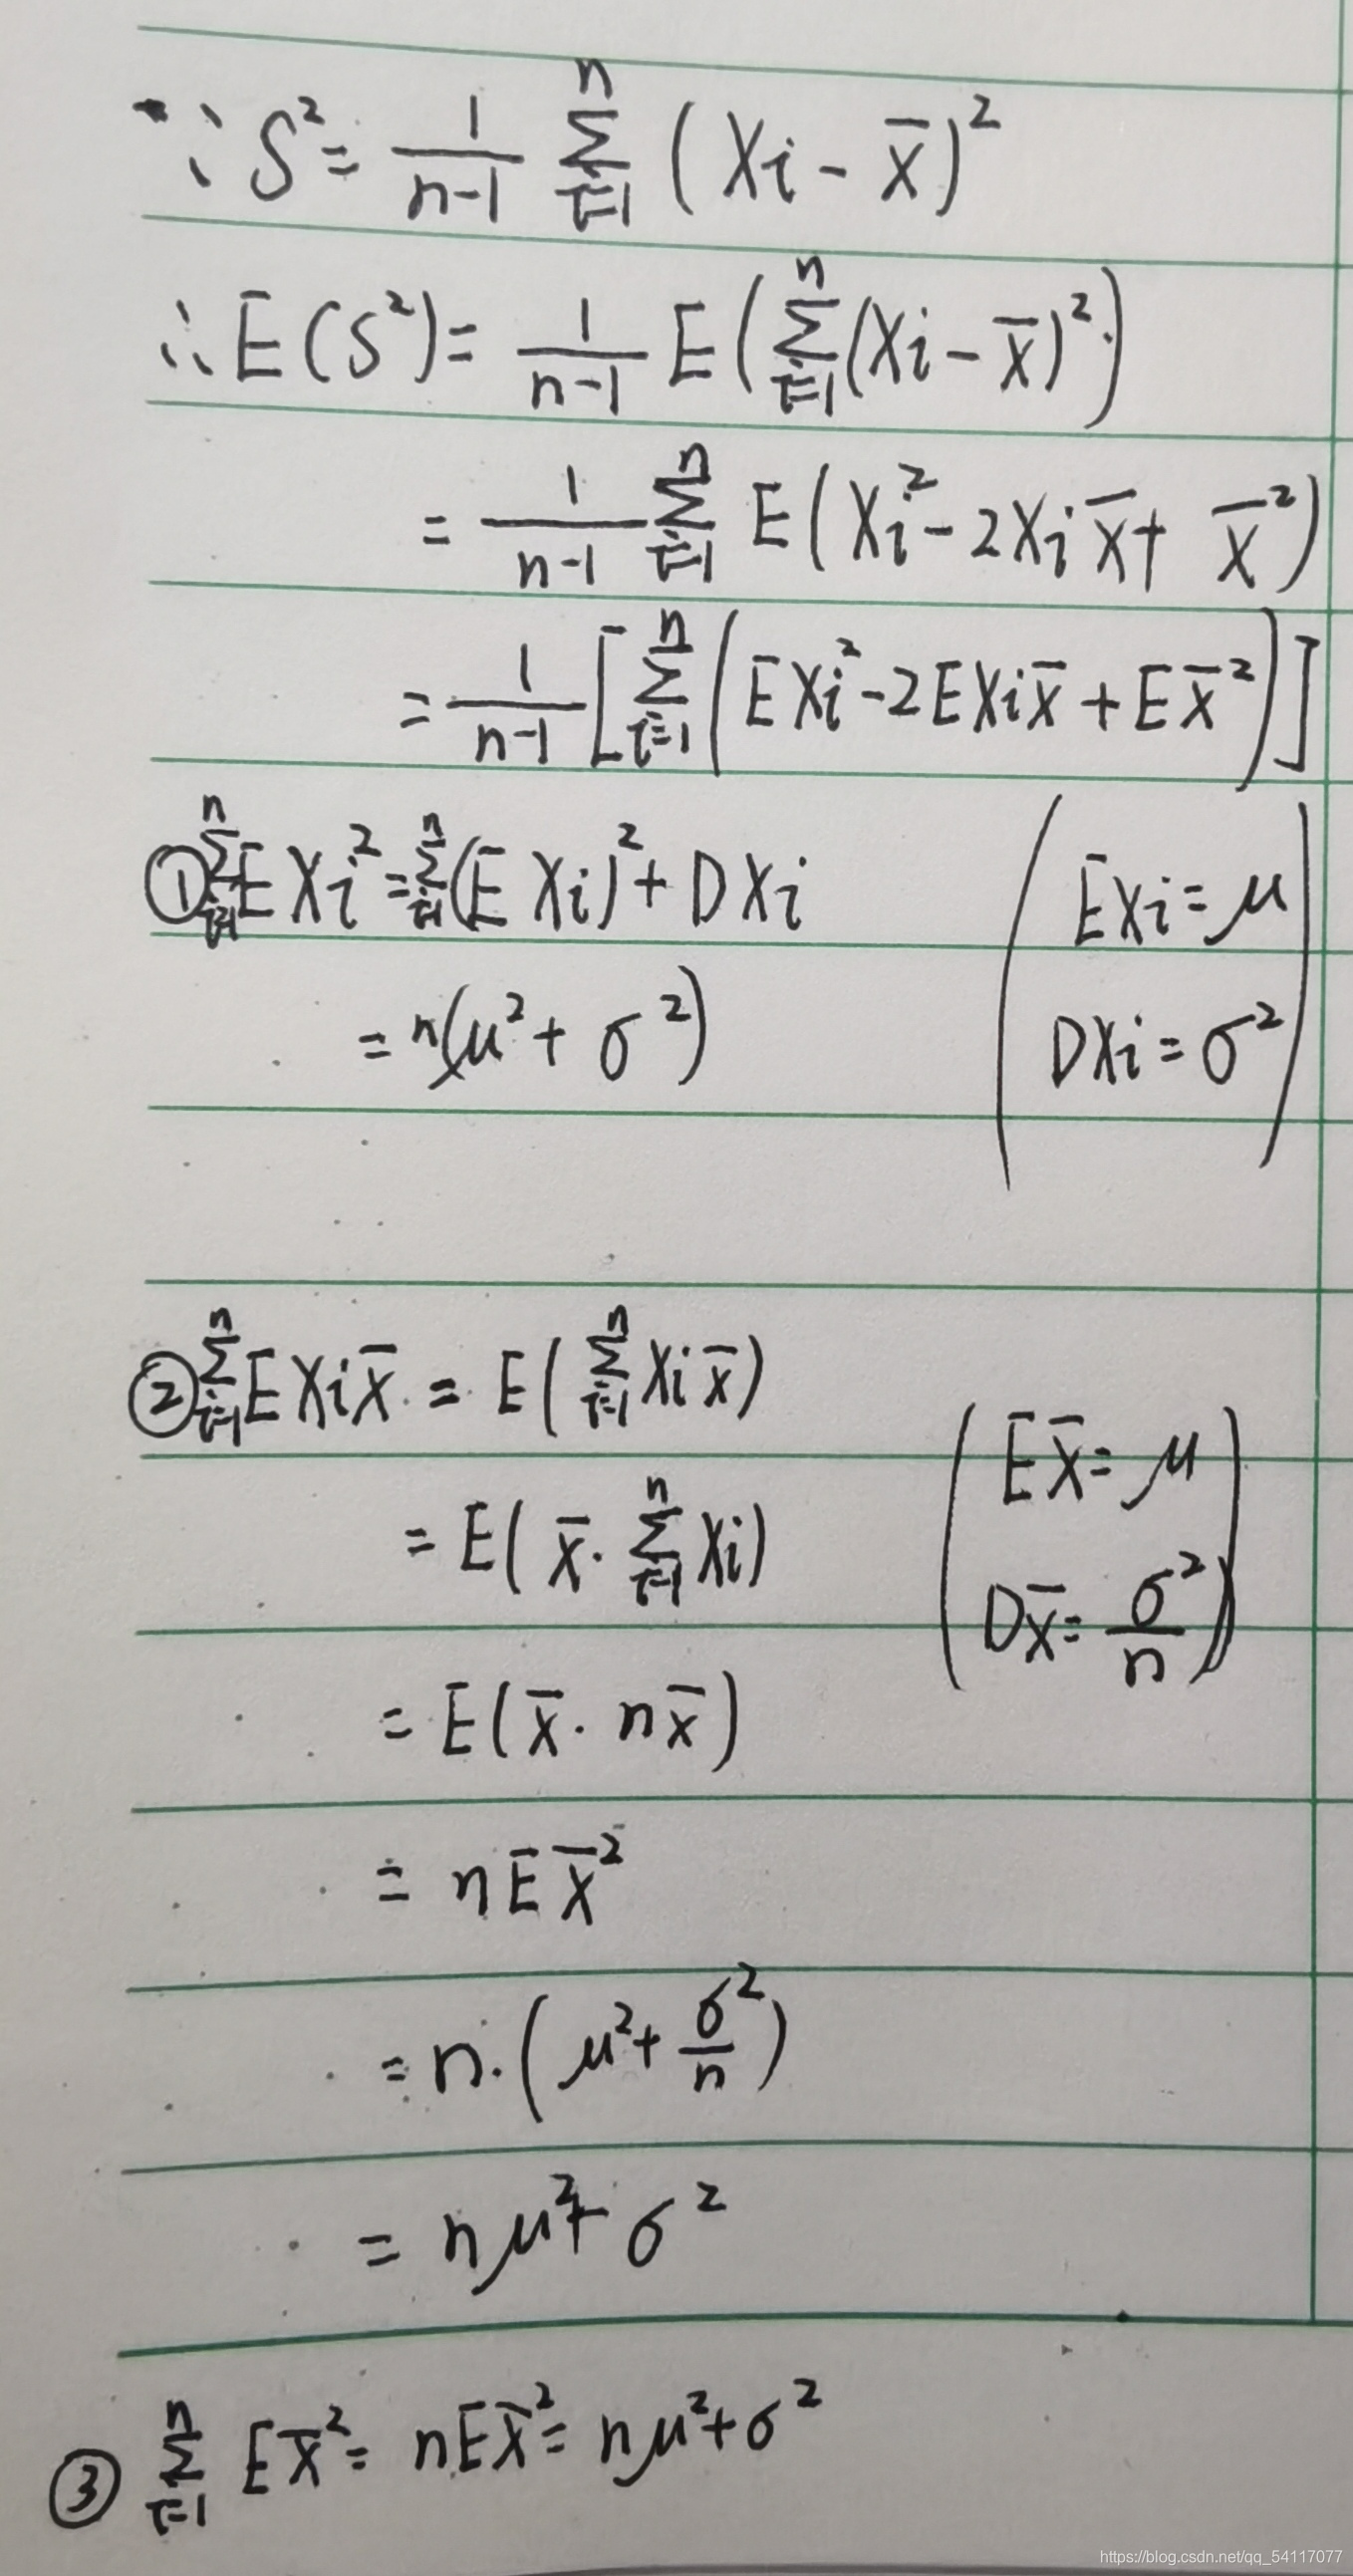 ∵ S² = 1/(n-1) Σ_{i=1}^{n} (Xi - X̄)²
∴ E(S²) = 1/(n-1) E(Σ_{i=1}^{n} (Xi - X̄)²)
= 1/(n-1) Σ_{i=1}^{n} E(Xi² - 2XiX̄ + X̄²)
= 1/(n-1) [Σ_{i=1}^{n} (EXi² - 2EXiX̄ + EX̄²)]
① Σ_{i=1}^{n} EXi² = Σ_{i=1}^{n} (EXi)² + DXi
= n(μ² + σ²)
(EXi = μ
DXi = σ²)
② Σ_{i=1}^{n} EXiX̄ = E(Σ_{i=1}^{n} XiX̄)
= E(X̄·Σ_{i=1}^{n} Xi)
= E(X̄·nX̄)
(EX̄ = μ
DX̄ = σ²/n)
= nEX̄²
= n·(μ² + σ²/n)
= nμ² + σ²
③ Σ_{i=1}^{n} EX̄² = nEX̄² = nμ² + σ²
https://blog.csdn.net/qq_54117077